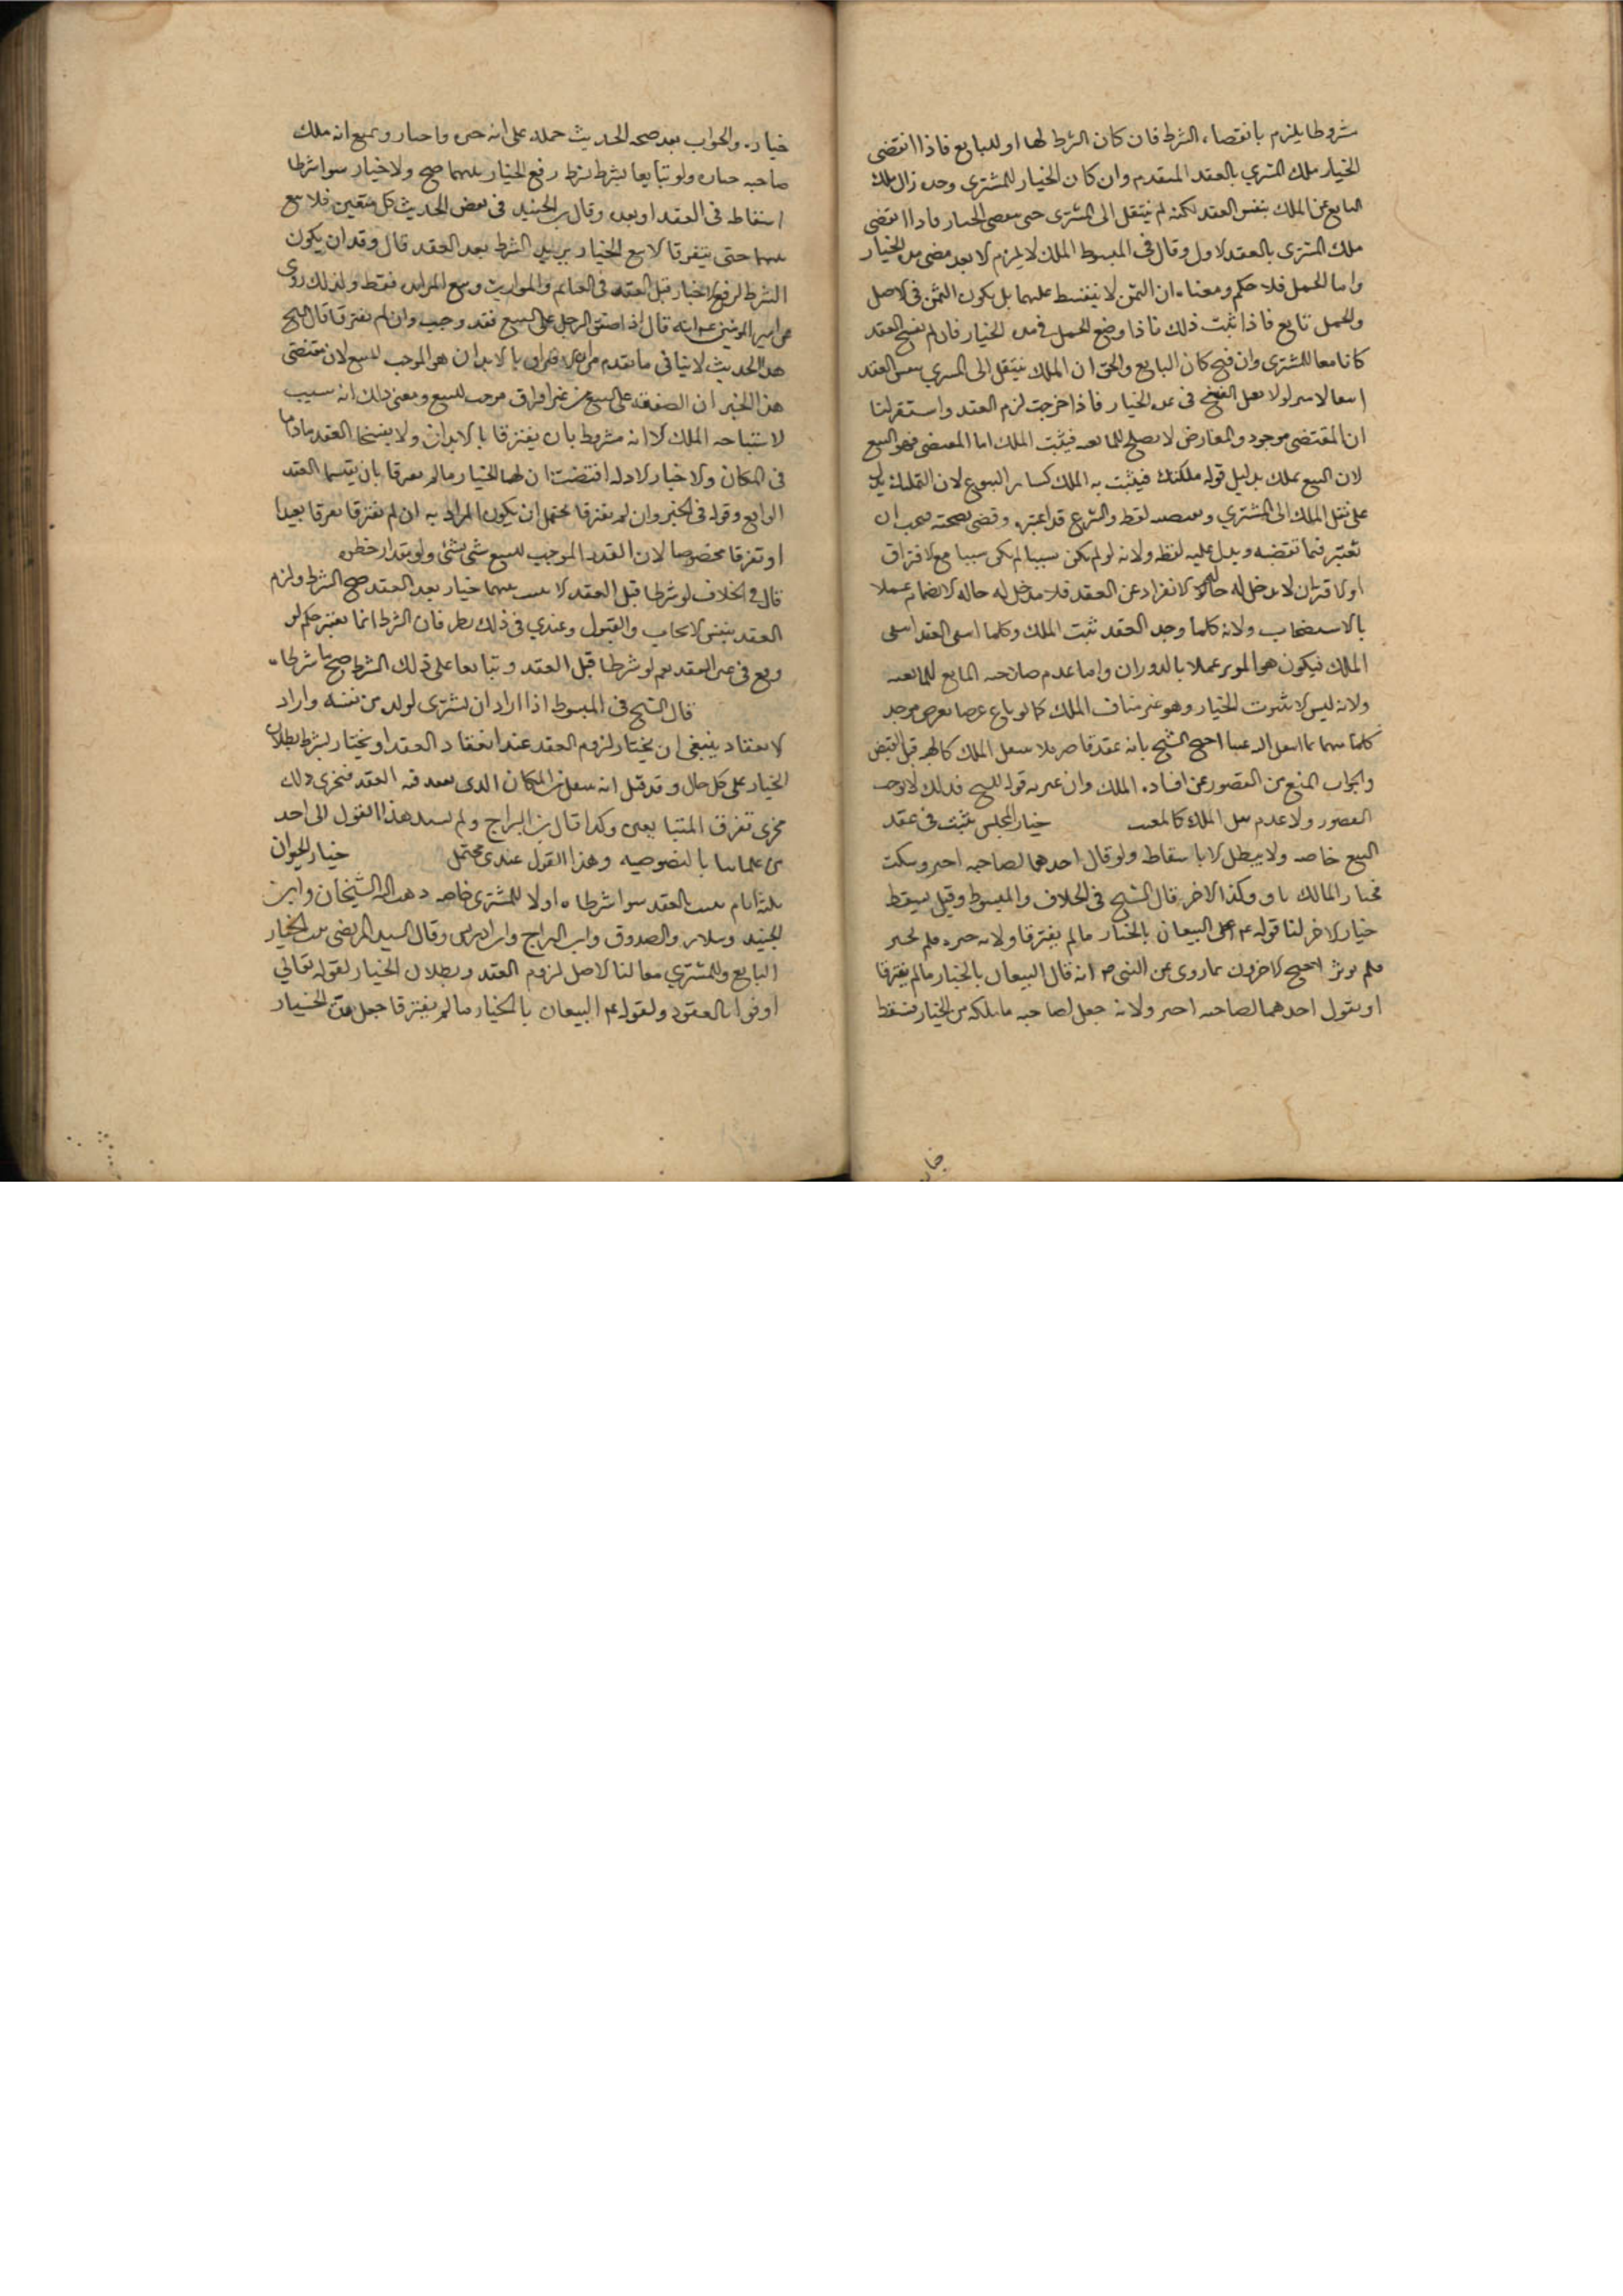 شروطا يلزم بانقضاء الشرط فان كان الشرط لهما او للبايع فاذا انقضى
الخيار ملك المشتري بالعقد المتقدم وان كان الخيار للمشترى وحده زال ملك
البايع عن الملك بنفس العقد لكنه لم ينتقل الى المشترى حتى ينقضى الخيار فاذا انقضى
ملك المشترى بالعقد الاول وقال فى المبسوط الملك لا يلزم الا بعد مضى مدة الخيار
واما الحمل فلا حكم له ومعناه ان الثمن لا يتقسط عليهما بل يكون الثمن فى الاصل
والحمل تابع فاذا ثبت ذلك فاذا وضع الحمل فى مدة الخيار فان لم يفسخ العقد
كانا معا للمشترى وان فسخ كان البايع والحق ان الملك ينتقل الى المشتري بنفس العقد
لولا الفسخ فى مدة الخيار فاذا خرجت لزم العقد واستقر لنا
ان المقتضى موجود والمعارض لا يصلح للمانعيه فيثبت الملك اما المقتضى فهو البيع
لان البيع تملك بدليل قوله ملكتك فيثبت به الملك كساير البيوع لان التمليك يدل
على نقل الملك الى المشتري ويقتضيه لفظه والشرع قد اعتبره وقضى بصحته فيجب ان
تعتبر فيما تقتضيه ويدل عليه لفظه ولانه لو لم يكن سببا لم يكن سببا مع الافتراق
او الاقتران لا يدخل له حالة الانفراد عن العقد فلا مدخل له حالة الانضمام عملا
بالاستصحاب ولانه كلما وجد العقد ثبت الملك وكلما انتفى العقد انتفى
الملك فيكون هو الموثر عملا بالدوران واما عدم صلاحيه المانع للمانعيه
ولانه ليس الا ثبوت الخيار وهو غير مناف الملك كما لو باع عرضا بعرض فوجد
كل منهما بما انتقل اليه عيبا احتج الشيخ بانه عقد قاصر فلا ينقل الملك كالهبة قبل القبض
والجواب المنع من القصور عن افادة الملك وان عبر به قوله للفسخ فذلك لا يوجب
القصور ولا عدم نقل الملك كالمعيب خيار المجلس يثبت فى عقد
البيع خاصه ولا يبطل الا باسقاطه ولو قال احدهما لصاحبه اختر وسكت
فخيار المالك باق وكذا الاخر قال الشيخ فى الخلاف والمبسوط وقيل يسقط
خيار الاخر لنا قوله البيعان بالخيار ما لم يفترقا ولانه خيره فلم يختر
فلم يوثر احتج الاخرون بما روى عن النبى ص انه قال البيعان بالخيار ما لم يفترقا
او يقول احدهما لصاحبه اختر ولانه جعل لصاحبه ما ملكه من الخيار فسقط
خياره والجواب بعد صحة الحديث حمله على انه خيره واختار ويمنع انه ملك
صاحبه خياره ولو تبايعا بشرط رفع الخيار بينهما صح ولا خيار سوا شرطا
اسقاطه فى العقد او بعده وقال ابن الجنيد فى بعض الحديث كل متبايعين فلا بيع
بينهما حتى يتفرقا الا بيع الخيار يريد الشرط بعد العقد قال وقد ان يكون
الشرط لرفع الخيار قبل العقد فى الغنايم والمواريث وبيع المزايدة فقط ولذلك روى
عن امير المومنين ع انه قال اذا صفق الرجل على البيع فقد وجب وان لم يفترقا قال الشيخ
هذا الحديث لا ينافى ما تقدم من ان الافتراق بالابدان هو الموجب للبيع لان مقتضى
هذا الخبر ان الصفقه على البيع من غير افتراق موجب للبيع ومعنى ذلك انه سبب
لاستباحة الملك الا انه مشروط بان يفترقا بالابدان ولا يفسخا العقد ما داما
فى المكان والاخبار الاوله اقتضت ان لهما الخيار ما لم يفترقا بان يفسخا العقد
الواقع وقوله فى الخبر وان لم يفترقا يحتمل ان يكون المراد به ان لم يفترقا تفرقا بعيدا
او تفرقا مخصوصا لان القدر الموجب للبيع شى يسير ولو بقدر خطوة
قال فى الخلاف لو شرطا قبل العقد الا يثبت بينهما خيار بعد العقد صح الشرط ولزم
العقد بنفس الايجاب والقبول وعندي فى ذلك نظر فان الشرط انما يعتبر حكمه لو
وقع فى متن العقد نعم لو شرطا قبل العقد وتبايعا على ذلك الشرط صح ما شرطاه
قال الشيخ فى المبسوط اذا اراد ان يشترى لولده من نفسه واراد
الانعقاد ينبغى ان يختار لزوم العقد عند انعقاد العقد او يختار بشرط بطلان
الخيار على كل حال وقد قيل انه ينتقل من المكان الذى يعقد فيه العقد فيجرى ذلك
مجرى تفرق المتبايعين وكذا قال ابن البراج ولم يسند هذا القول الى احد
من علماينا بالخصوصيه وهذا القول عندى محتمل خيار الحيوان
ثلثة ايام يثبت بالعقد سوا شرطاه او لا للمشترى خاصه ذهب اليه الشيخان وابن
الجنيد وسلار والصدوق وابن البراج وابن ادريس وقال السيد المرتضى يثبت الخيار
البايع وللمشترى معا لنا الاصل لزوم العقد وبطلان الخيار لقوله تعالى
اوفوا بالعقود ولقوله ع البيعان بالخيار ما لم يفترقا جعل مدة الخيار